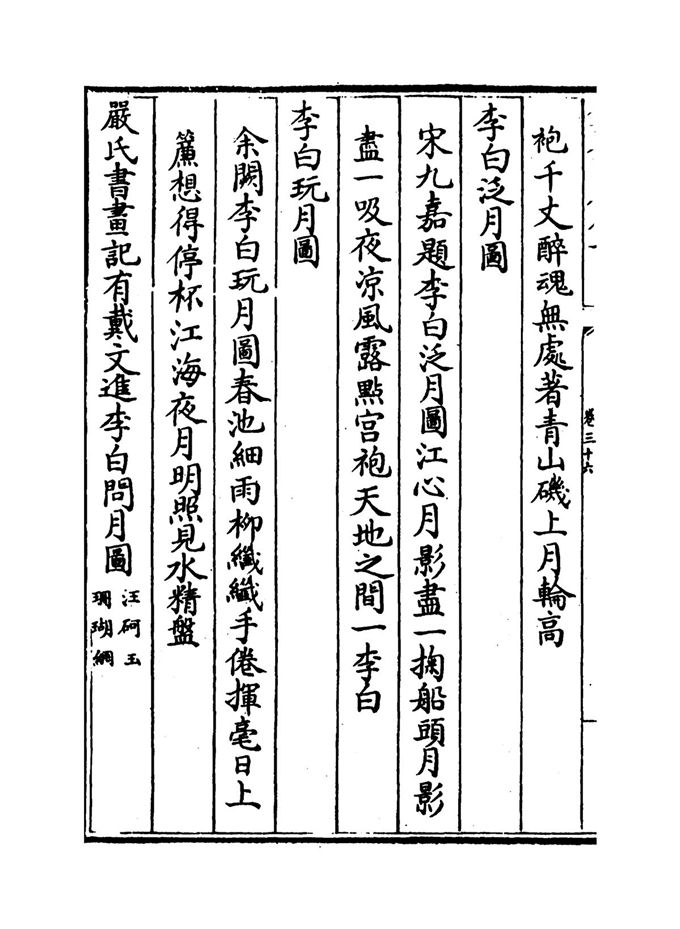 袍千丈醉魂無處著青山磯上月輪高
李白泛月圖
宋九嘉題李白泛月圖江心月影盡一掬船頭月影
盡一吸夜凉風露點宫袍天地之間一李白
李白玩月圖
余闕李白玩月圖春池細雨柳纖纖手倦揮毫日上
簾想得停杯江海夜月明照見水精盤
嚴氏書畫記有戴文進李白問月圖
汪砢玉
珊瑚網
卷三十六